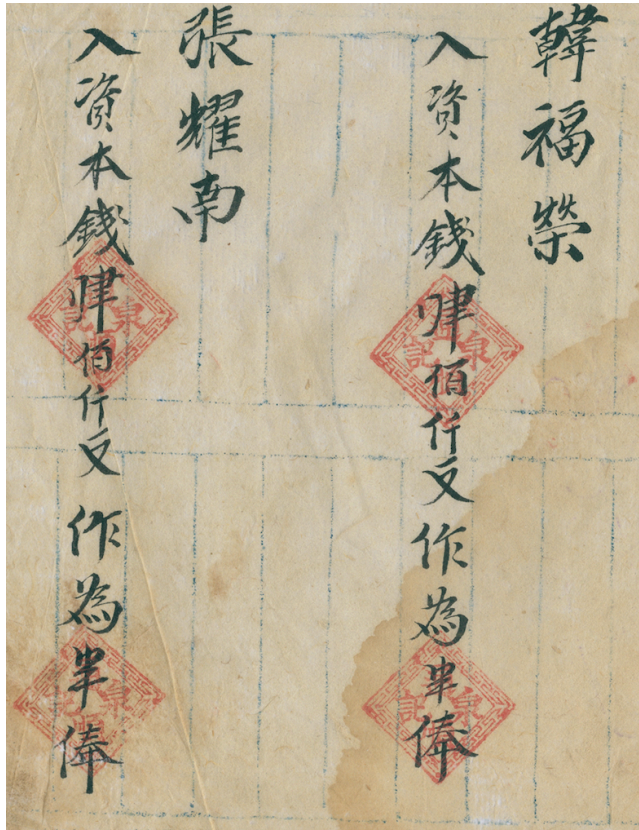 韓福榮
入資本錢肆佰仟文作為半俸
張耀南
入資本錢肆佰仟文作為半俸